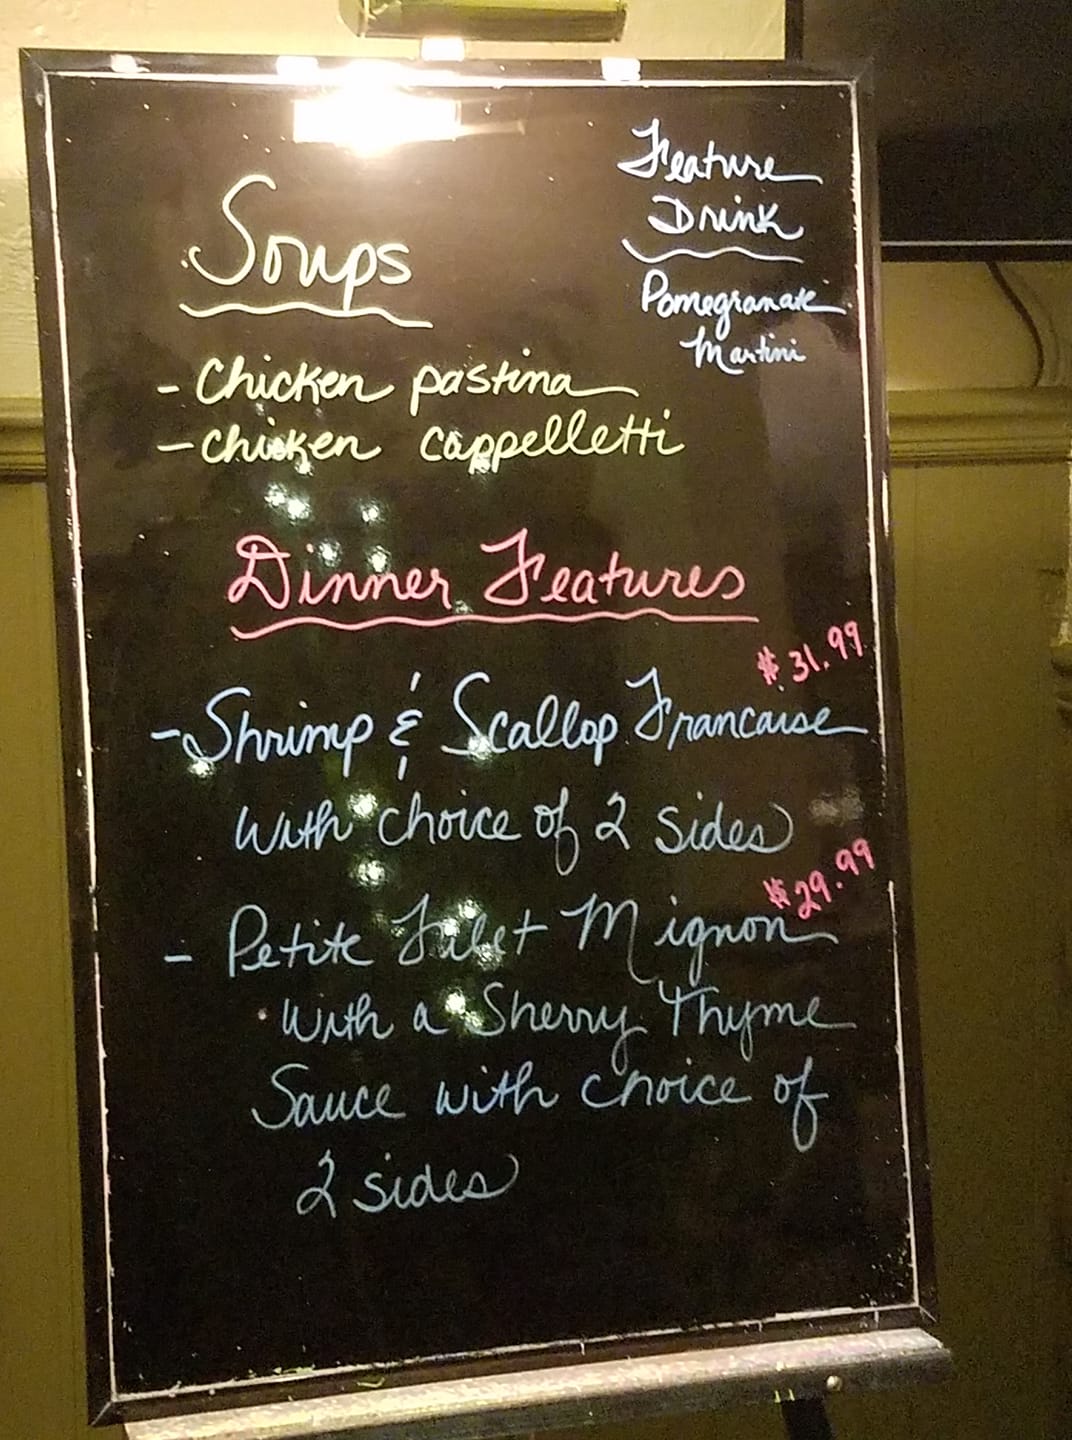 Feature
Drink
Pomegranate
Martini
Soups
- Chicken pastina
- chicken cappelletti
Dinner Features
$31.99
- Shrimp & Scallop Francaise
with choice of 2 sides
$29.99
- Petite Filet Mignon
with a Sherry Thyme
Sauce with choice of
2 sides